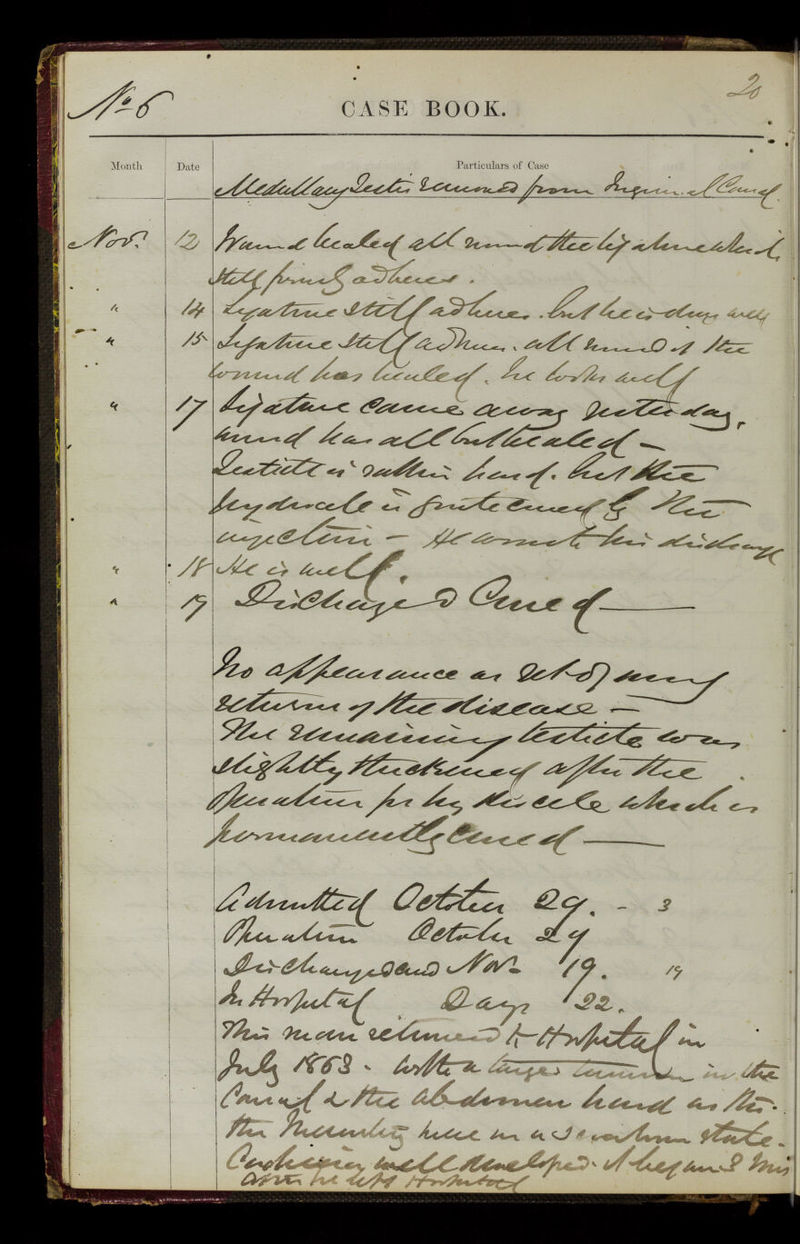 No 6
20
CASE BOOK.
Month Date Particulars of Case
Medullary Testis removed from Inguinal Canal.
Novr. 12 Wound healed all round the ligature which
still firmly adheres.
" 14 Ligature still adheres. but he is doing well
" 15 Ligature still adheres. all round it the
wound has healed. he looks well
" 17 Ligature came away yesterday,
wound has all but healed —
Testicle is rather hard. but the
hydrocele is quite cured by the
injection — He wants his discharge
" 18 He is well.
" 19 Discharged Cured —
No appearance as yet of any
return of the disease —
The remaining testicle was
slightly thickened after the
operation for hydrocele which is
permanently cured —
Admitted October 29. - 3
Operation October 29
Discharged Nov. 19. 19
In Hospital Days 22.
This man returned to Hospital in
July 1863. with a large tumour in the
Canal & the abdomen hard as
the here in a state.
Cachexia well developed. It began 3
after he left Hospital